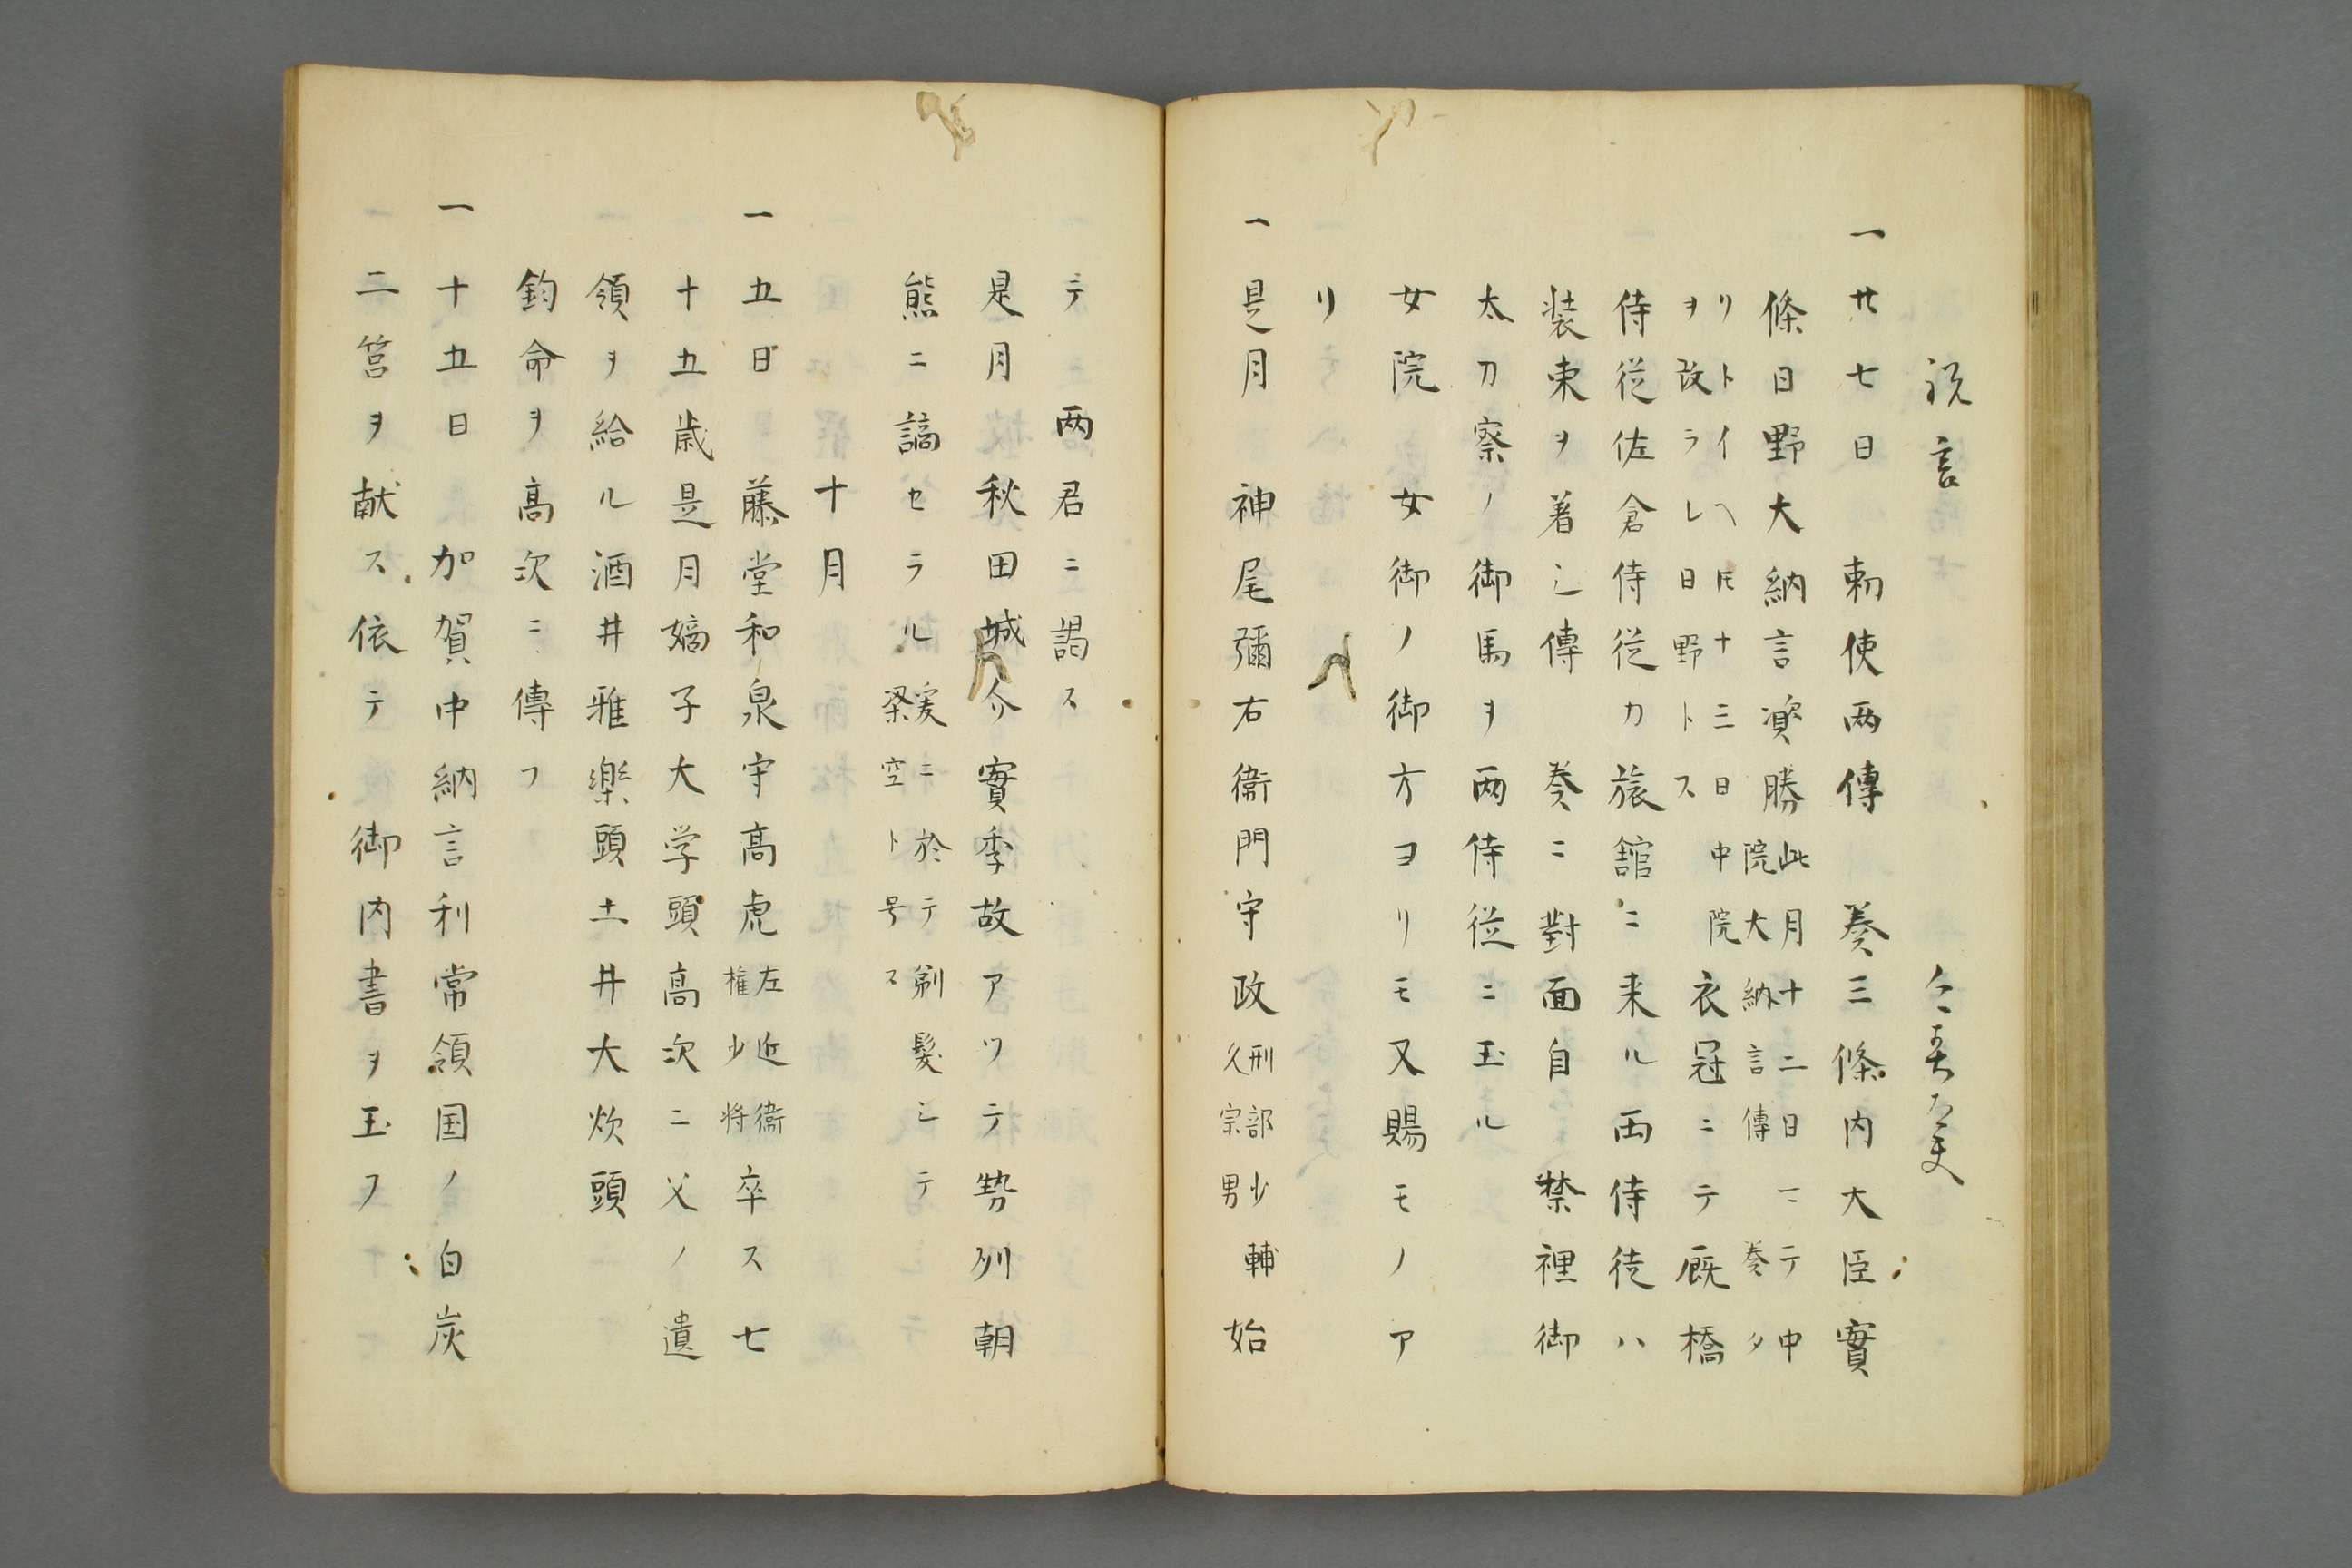 祝言
一廿七日　勅使両傳　奏三條内大臣實
條日野大納言資勝此月十二日ニテ中
院大納言傳奏タ
リトイヘ𪜈十三日中院
ヲ改ラレ日野トス
衣冠ニテ厩橋
侍従佐倉侍従カ旅舘ニ来ル両侍従ハ
装束ヲ着シ傳　奏ニ對面自　禁裡御
太刀察ノ御馬ヲ両侍従ニ玉ル
女院女御ノ御方ヨリモ又賜モノア
リ
一是月　神尾彌右衛門守政刑部少輔
久宗男
始
テ両君ニ謁ス
是月秋田城介實季故アツテ勢列朝
熊ニ謫セラル爰ニ於テ剃髪シテ
梁空ト号ス
十月
一五日　藤堂和泉守高虎左近衛
権少将
卒ス七
十五歳是月嫡子大学頭高次ニ父ノ遺
領ヲ給ル酒井雅楽頭土井大炊頭
鈞命ヲ高次ニ傳フ
一十五日　加賀中納言利常領国ノ白炭
二筥ヲ献ス依テ　御内書ヲ玉フ